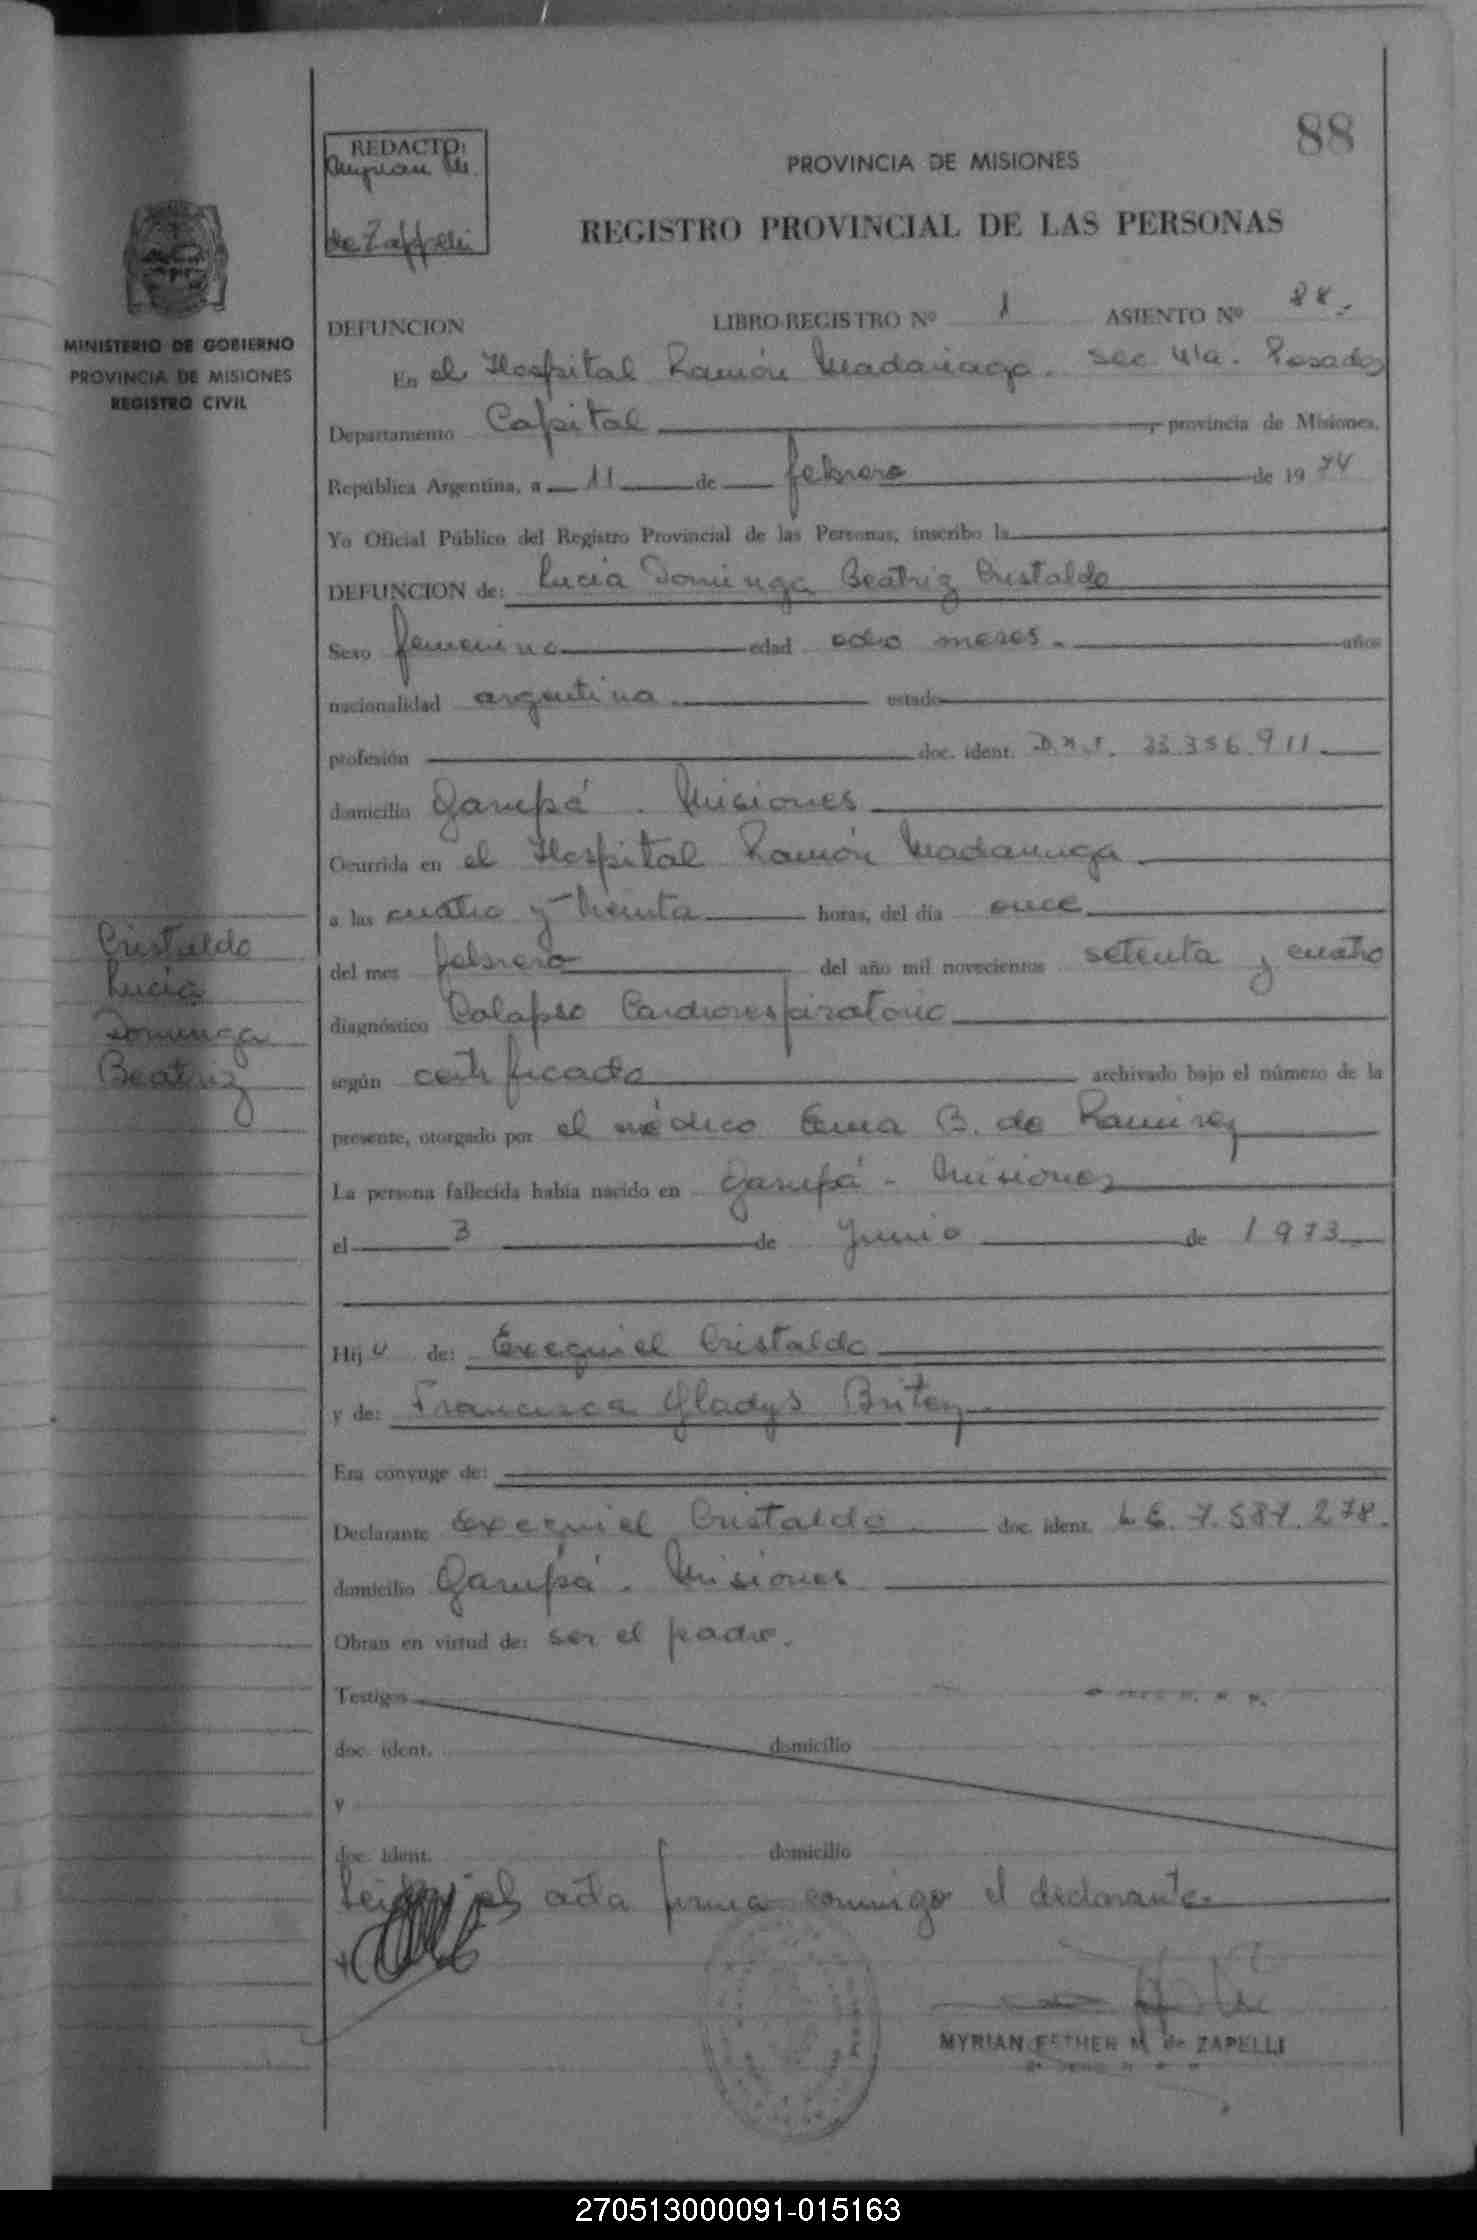 88
REDACTO:
Myrian M.
de Zappelli
PROVINCIA DE MISIONES
REGISTRO PROVINCIAL DE LAS PERSONAS
MINISTERIO DE GOBIERNO
PROVINCIA DE MISIONES
REGISTRO CIVIL
DEFUNCION LIBRO-REGISTRO Nº 1 ASIENTO Nº 88.
En el Hospital Ramón Madariaga. sec. 4ta. Posadas
Departamento Capital provincia de Misiones,
República Argentina, a 11 de febrero de 1974
Yo Oficial Público del Registro Provincial de las Personas, inscribo la
DEFUNCION de: Lucia Dominga Beatriz Cristaldo
Sexo femenino edad ocho meses. años
nacionalidad argentina estado
profesión doc. ident. D.N.I. 23.356.911
domicilio Garupá. Misiones
Ocurrida en el Hospital Ramón Madariaga
a las cuatro y treinta horas, del día once
del mes febrero del año mil novecientos setenta y cuatro
diagnóstico Colapso Cardiorespiratorio
según certificado archivado bajo el número de la
presente, otorgado por el médico Ema B. de Ramirez
La persona fallecida había nacido en Garupá - Misiones
el 3 de Junio de 1973
Cristaldo
Lucia
Dominga
Beatriz
Hija de: Exequiel Cristaldo
y de: Francisca Gladys Britez
Era conyuge de:
Declarante Exequiel Cristaldo doc. ident. L.E. 7.587.278.
domicilio Garupá. Misiones
Obran en virtud de: ser el padre.
Testigos
doc. ident. domicilio
y
doc. ident. domicilio
Leida el acta firma conmigo el declarante
MYRIAN ESTHER M. de ZAPELLI
270513000091-015163